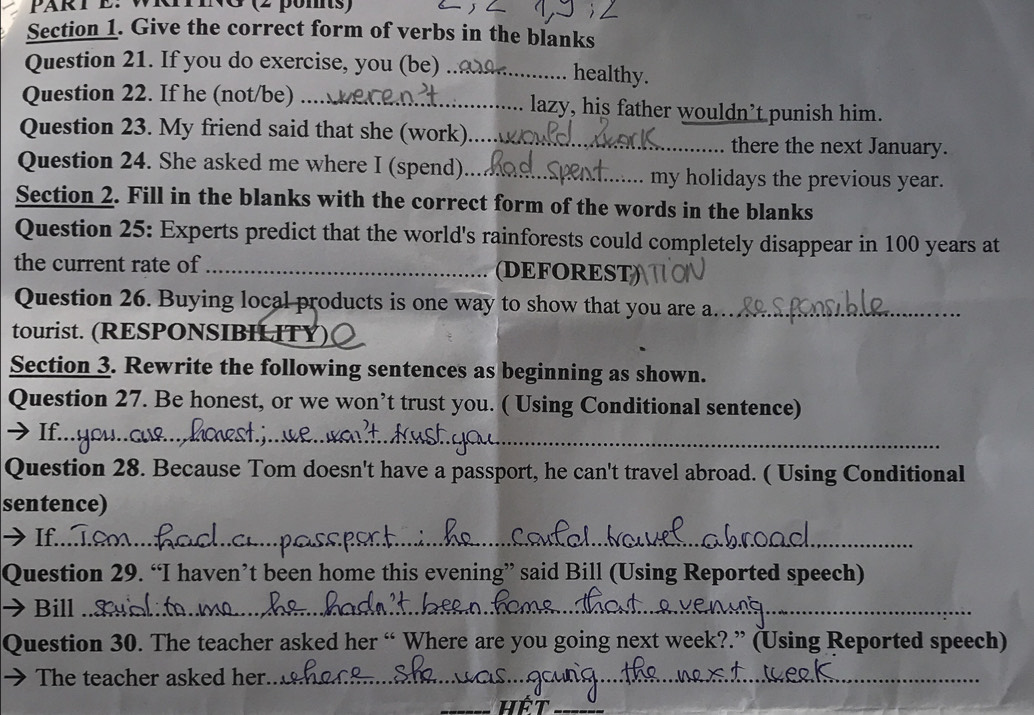 PART E: WRITING (2 points)
Section 1. Give the correct form of verbs in the blanks
Question 21. If you do exercise, you (be) ..are............ healthy.
Question 22. If he (not/be) ....weren't............. lazy, his father wouldn't punish him.
Question 23. My friend said that she (work).....would work........... there the next January.
Question 24. She asked me where I (spend)...had spent...... my holidays the previous year.
Section 2. Fill in the blanks with the correct form of the words in the blanks
Question 25: Experts predict that the world's rainforests could completely disappear in 100 years at
the current rate of ............................................. (DEFOREST)ATION
Question 26. Buying local products is one way to show that you are a....responsible............
tourist. (RESPONSIBILITY) e
Section 3. Rewrite the following sentences as beginning as shown.
Question 27. Be honest, or we won't trust you. ( Using Conditional sentence)
→ If...you are honest, we won't trust you.............................................
Question 28. Because Tom doesn't have a passport, he can't travel abroad. ( Using Conditional
sentence)
→ If....Tom had a passport, he could travel abroad................
Question 29. “I haven't been home this evening” said Bill (Using Reported speech)
→ Bill ..said to me he hadn't been home that evening................................
Question 30. The teacher asked her “ Where are you going next week?.” (Using Reported speech)
→ The teacher asked her..where she was going the next week........................
------ HẾT ------